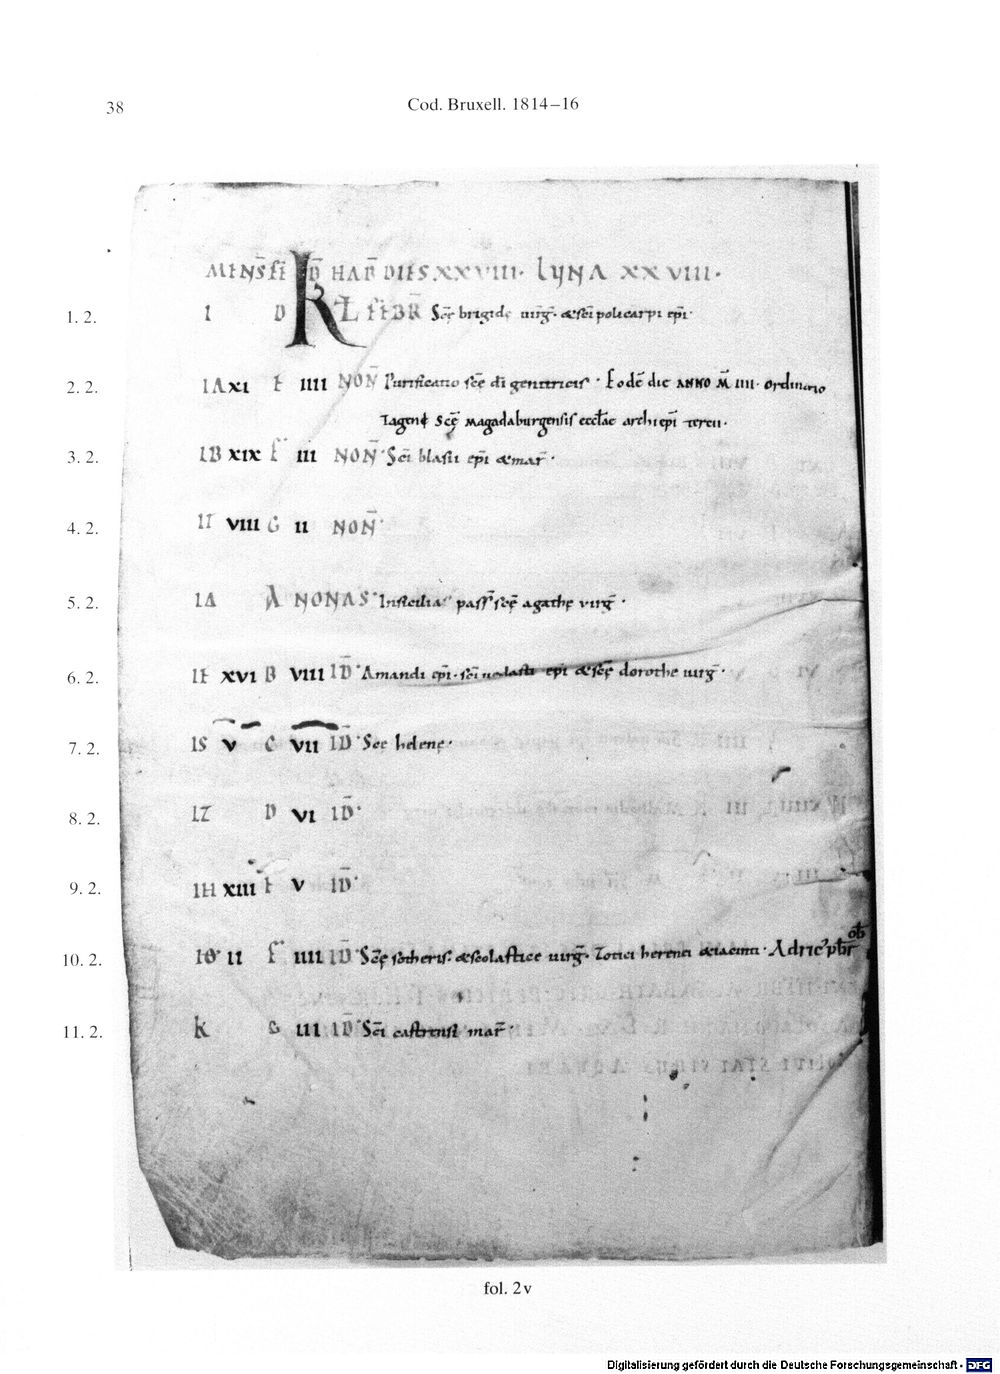 38
Cod. Bruxell. 1814–16
MENS̄ FE HAB̄ DIES XXVIII· LUNA XXVIIII·
1. 2. I D KL FEBR̄ Scē brigide uirḡ· & sc̄i policarpi ep̄i·
2. 2. IA XI E IIII NOÑ Purificatio scē dī genitricis· Eodē die ANNO M̄ IIII· ordinatio
Tagen scē magadaburgensis eccłae archiep̄i tercii·
3. 2. IB XIX F III NOÑ Sc̄i blasii ep̄i & mar̄·
4. 2. IΓ VIII G II NOÑ
5. 2. IΔ A NONAS· In sicilia pass̄ scę̄ agathę virḡ·
6. 2. IE XVI B VIII ID̄ Amandi ep̄i· sc̄i uedasti ep̄i & scę̄ dorothe uirḡ·
7. 2. IS V C VII ID̄ Sce helenę·
8. 2. IZ D VI ID̄
9. 2. IH XIII E V ID̄
10. 2. IΘ II F IIII ID̄ Scę̄ sotheris· & scolastice uirḡ· Zotici herenei & iacinti· Adric' pb̄r ob̄
11. 2. K G III ID̄ Sc̄i castrensi mar̄·
fol. 2v
Digitalisierung gefördert durch die Deutsche Forschungsgemeinschaft - DFG